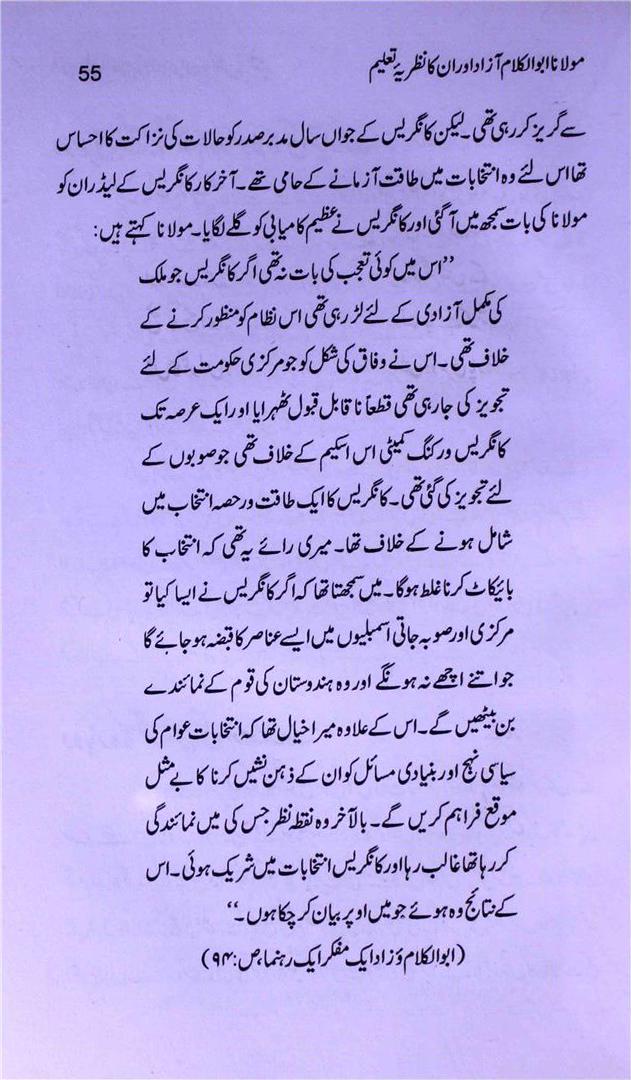 مولانا ابوالکلام آزاد اور ان کا نظریۂ تعلیم
55
سے گریز کر رہی تھی۔ لیکن کانگریس کے جواں سال مدبر صدر کو حالات کی نزاکت کا احساس
تھا اس لئے وہ انتخابات میں طاقت آزمانے کے حامی تھے۔ آخر کار کانگریس کے لیڈران کو
مولانا کی بات سمجھ میں آگئی اور کانگریس نے عظیم کامیابی کو گلے لگایا۔ مولانا کہتے ہیں:
”اس میں کوئی تعجب کی بات نہ تھی اگر کانگریس جو ملک
کی مکمل آزادی کے لئے لڑ رہی تھی اس نظام کو منظور کرنے کے
خلاف تھی۔ اس نے وفاق کی شکل کو جو مرکزی حکومت کے لئے
تجویز کی جارہی تھی قطعاً ناقابل قبول ٹھہرایا اور ایک عرصہ تک
کانگریس ورکنگ کمیٹی اس اسکیم کے خلاف تھی جو صوبوں کے
لئے تجویز کی گئی تھی۔ کانگریس کا ایک طاقت ور حصہ انتخاب میں
شامل ہونے کے خلاف تھا۔ میری رائے یہ تھی کہ انتخاب کا
بائیکاٹ کرنا غلط ہوگا۔ میں سمجھتا تھا کہ اگر کانگریس نے ایسا کیا تو
مرکزی اور صوبہ جاتی اسمبلیوں میں ایسے عناصر کا قبضہ ہو جائے گا
جو اتنے اچھے نہ ہونگے اور وہ ہندوستان کی قوم کے نمائندے
بن بیٹھیں گے۔ اس کے علاوہ میرا خیال تھا کہ انتخابات عوام کی
سیاسی نہج اور بنیادی مسائل کو ان کے ذہن نشیں کرنا کا بے مثل
موقع فراہم کریں گے۔ بالآخر وہ نقطہ نظر جس کی میں نمائندگی
کر رہا تھا غالب رہا اور کانگریس انتخابات میں شریک ہوئی۔ اس
کے نتائج وہ ہوئے جو میں اوپر بیان کر چکا ہوں۔“
(ابوالکلام ؤزاد ایک مفکر ایک رہنما،ص:۹۴)